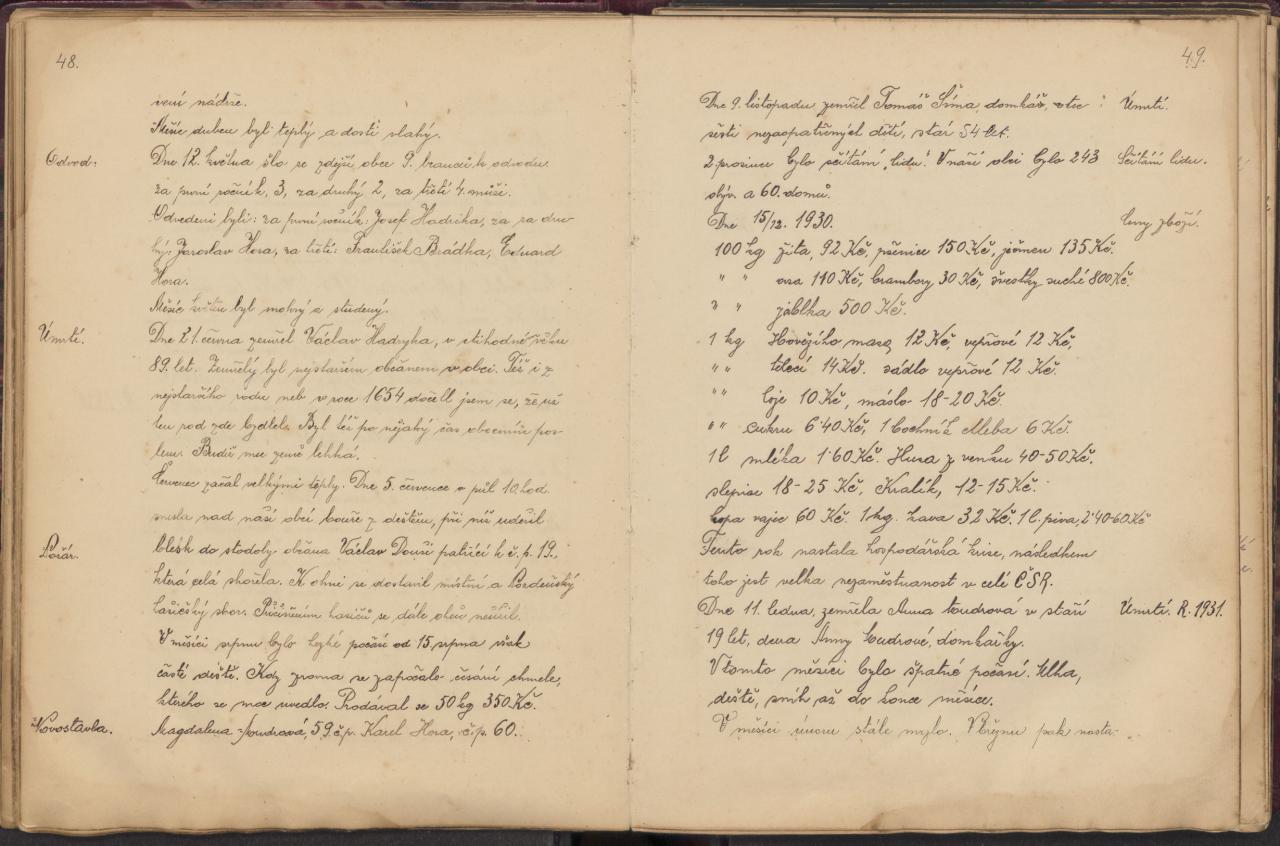 48.
vení nádrže.
Měsíc duben byl teplý a dosti vlahý.
Odvod:
Dne 12. května šlo ze zdejší obce 9. branců k odvodu.
za první ročník, 3, za druhý 2, za třetí 4. muži.
Odvedeni byli: za první ročník: Josef Hadrika, za za dru-
hý: Jaroslav Hora, za třetí: František Brádka, Eduard
Hora.
Měsíc květen byl mokrý a studený.
Úmrtí.
Dne 21. června zemřel Václav Hadryka, v ctihodné věku
89. let. Zemřelý byl nejstarším občanem v obci. Též i z
nejstaršího rodu neb v roce 1654 dočetl jsem se, že už
ten rod zde bydlel. Byl též po nějaký čas obecním pos-
lem. Budiž mu země lehká.
Červenec začal velkými teply. Dne 5. července o půl 10. hod.
snesla nad naší obcí bouře z deštěm, při níž udeřil
Požár.
blesk do stodoly občana Václav Douši patřící k č.p. 19.,
která celá shořela. K ohni se dostavil místní a
hasičský sbor. Přičiněním hasičů se dále oheň nešířil.
V měsíci srpnu bylo hezké počasí od 15, srpna však
časté deště. Kdy zrovna se započalo česání chmele,
kterého se moc uvedlo. Prodával se 50 kg 350 Kč.
Novostavba.
Magdalena Loudrová, 59 č.p. Karel Hora, č.p. 60.
49.
Dne 9. listopadu, zemřel Tomáš Šíma, domkář, otec
Úmrtí.
šesti nezaopatřených dětí, stár 54 let.
2 prosince bylo sčítání „lidu". V naší obci bylo 243
Sčítání lidu.
obyv. a 60. domů.
Dne 15/12. 1930.
Ceny zboží.
100 kg žita, 92 Kč, pšenice 150 Kč, ječmen 135 Kč.
" " ovsa 110 Kč, brambory 30 Kč, švestky suché 800 Kč.
" " jablka 500 Kč.
1 kg Hovězího masa 12 Kč, vepřové 12 Kč,
" " telecí 14 Kč. sádlo vepřové 12 Kč.
" " loje 10 Kč, máslo 18-20 Kč.
" " cukru 6˙40 Kč, 1 bochník chleba 6 Kč.
1 l mléka 1˙60 Kč. Husa z venku 40-50 Kč.
slepice 18-25 Kč, Kralík, 12-15 Kč.
kopa vajec 60 Kč. 1 kg. kava 32 Kč. 1 l. piva, 2˙40-60 Kč
Tento rok nastala hospodářská krise, následkem
toho jest velka nezaměstnanost v celé ČSR.
Dne 11. ledna, zemřela Anna Loudrová v staří
Úmrtí. R. 1931.
19 let, dcera Anny Loudrové, domkařky.
V tomto měsíci bylo špatné počasí. Mlha,
deště, sníh až do konce měsíce.
V měsíci únoru stále mrzlo. V březnu pak nasta-